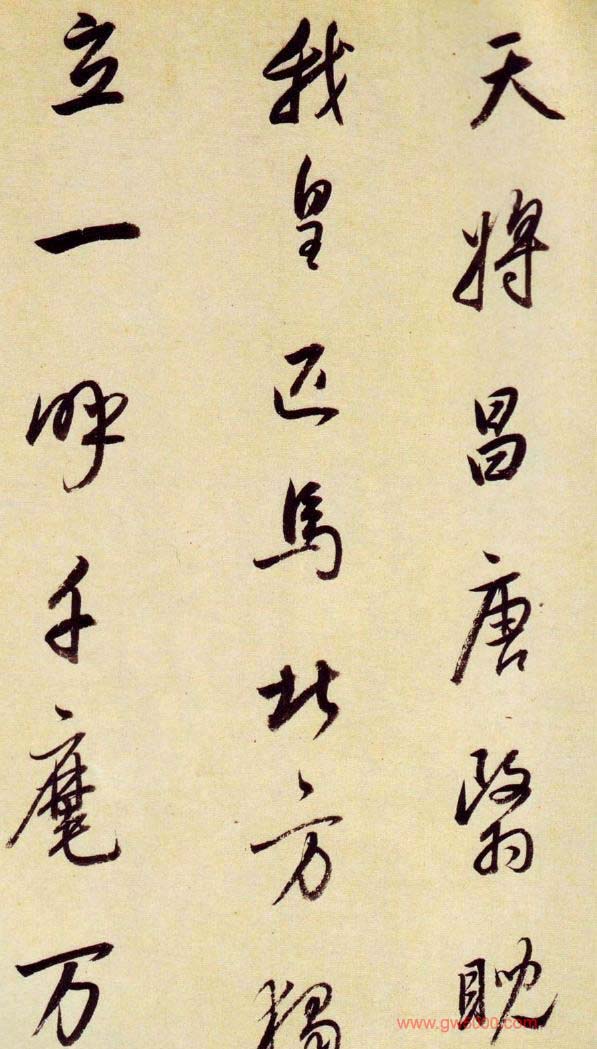 天將昌唐翳睨
我皇匹馬北方獨
立一呼千麾万